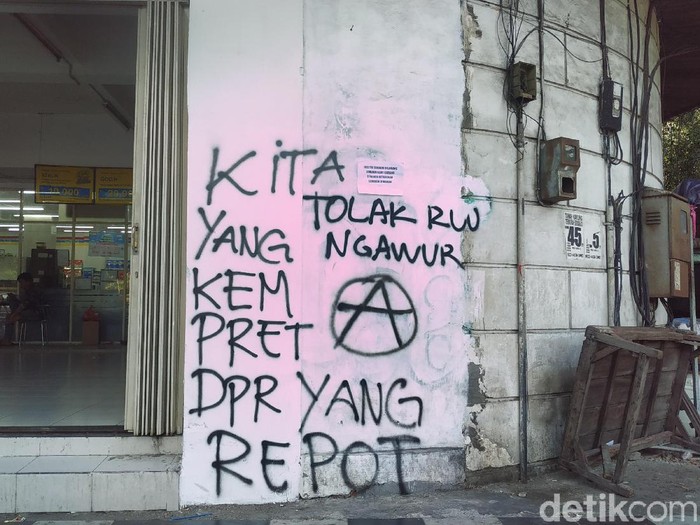 KITA
YANG
KEM
PRET
DPR YANG
REPOT
TOLAK RUU
NGAWUR
A
45
5
detikcom